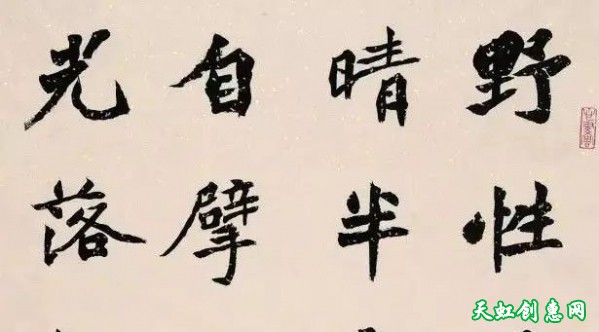 野性
晴半
自擘
光落
天虹创惠网